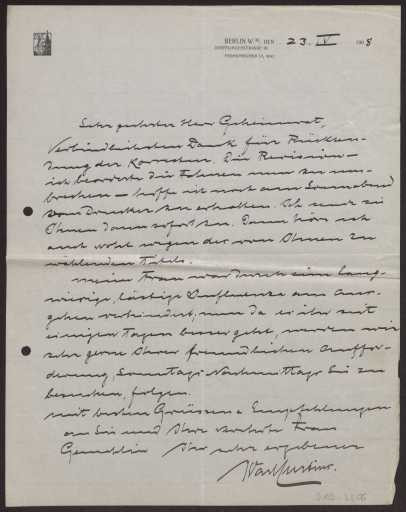 BERLIN W. 30, DEN 23. IV 1908
Sehr geehrter Herr Geheimrat,
Verbindlichsten Dank für Rücksen-
dung der Korrektur. Die Revisionen –
ich beorderte die Fahnen nun zu um-
brechen – hoffe ich noch am Sonnabend
vom Drucker zu erhalten. Ich sende sie
Ihnen dann sofort zu. Dann höre ich
auch wohl wegen des von Ihnen zu
wählenden Titels.
Meine Frau war durch eine lang-
wierige, lästige Influenza am Aus-
gehen verhindert, nun da es ihr seit
einigen Tagen besser geht, werden wir
sehr gerne Ihrer freundlichen Auffor-
derung, Sonntags-Nachmittags Sie zu
besuchen, folgen.
Mit besten Grüssen & Empfehlungen
an Sie und Ihre verehrte Frau
Gemahlin Ihr sehr ergebener
Karl Curtius.